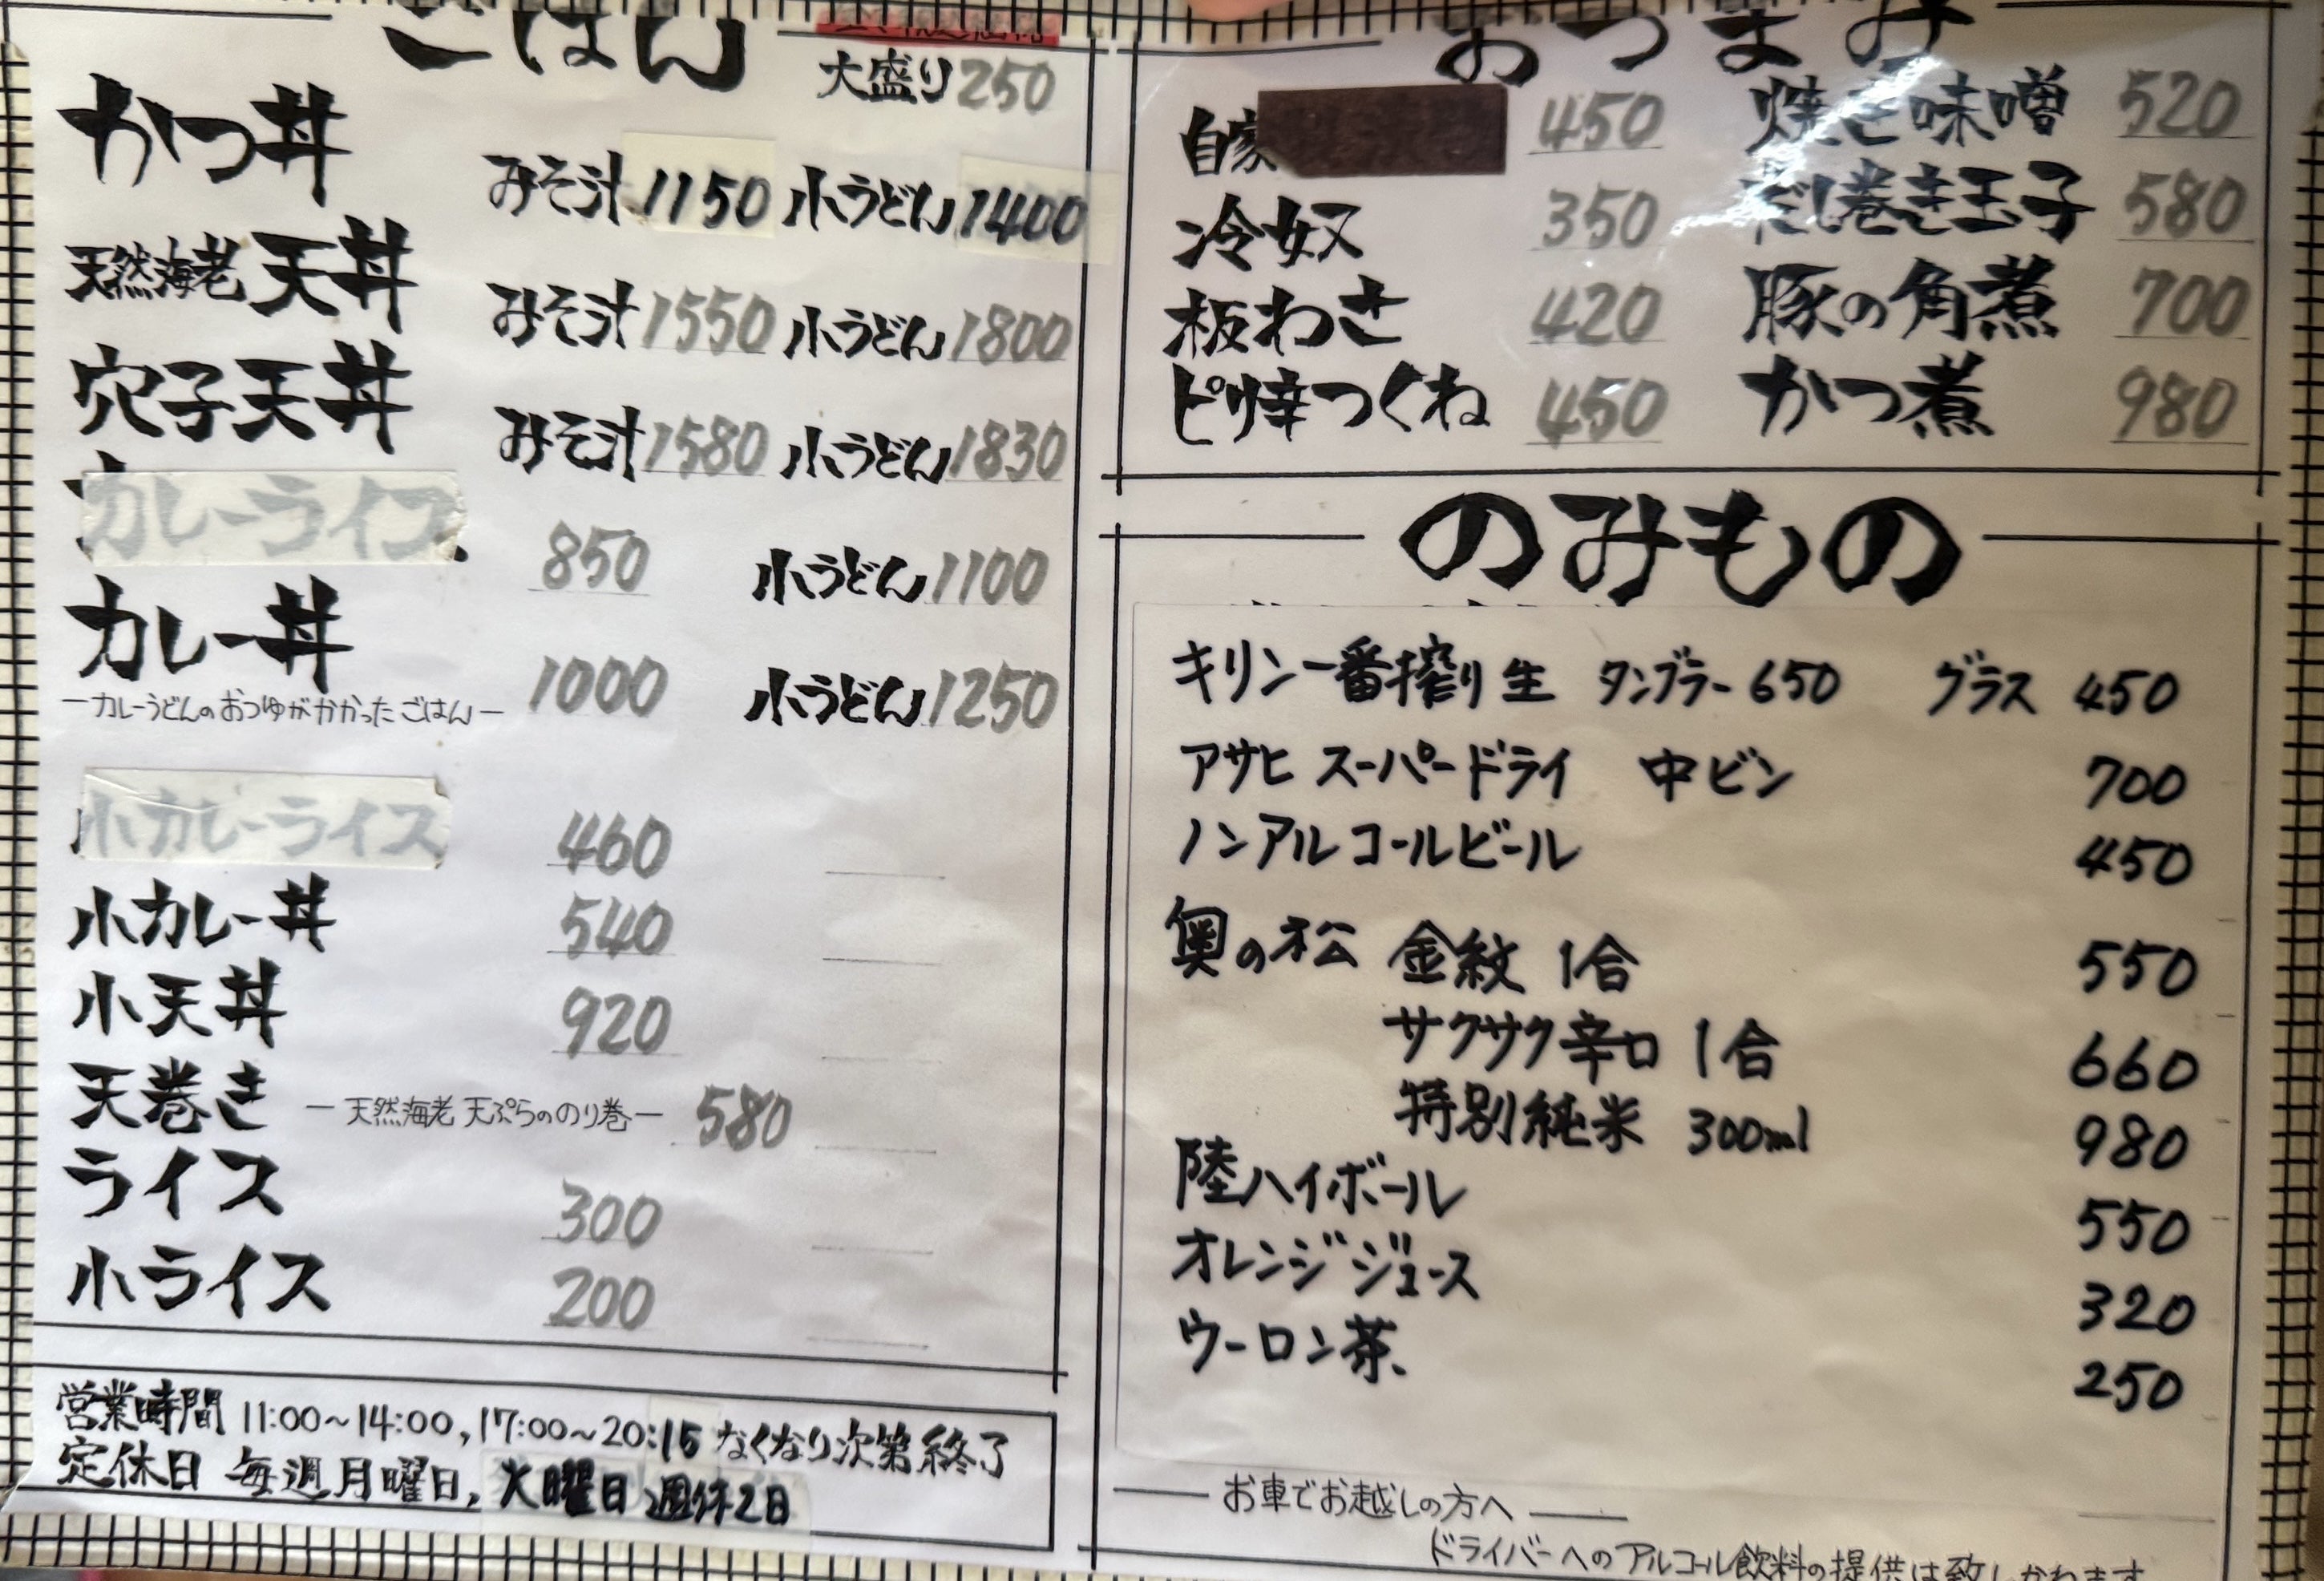 ごはん
大盛り 250
かつ丼 みそ汁 1150 小うどん 1400
天然海老 天丼 みそ汁 1550 小うどん 1800
穴子天丼 みそ汁 1580 小うどん 1830
カレーライス 850 小うどん 1100
カレー丼 1000 小うどん 1250
ーカレーうどんのおつゆがかかったごはんー
小カレーライス 460
小カレー丼 540
小天丼 920
天巻き ー天然海老 天ぷらののり巻ー 580
ライス 300
小ライス 200
営業時間 11:00~14:00, 17:00~20:15 なくなり次第終了
定休日 毎週月曜日, 火曜日 週休2日
おつまみ
自家 450 焼き味噌 520
冷奴 350 だし巻き玉子 580
板わさ 420 豚の角煮 700
ピリ辛つくね 450 かつ煮 980
のみもの
キリン一番搾り生 タンブラー 650 グラス 450
アサヒ スーパードライ 中ビン 700
ノンアルコールビール 450
奥の松 金紋 1合 550
サクサク辛口 1合 660
特別純米 300ml 980
陸ハイボール 550
オレンジジュース 320
ウーロン茶 250
お車でお越しの方へ
ドライバーへのアルコール飲料の提供は致しかねます